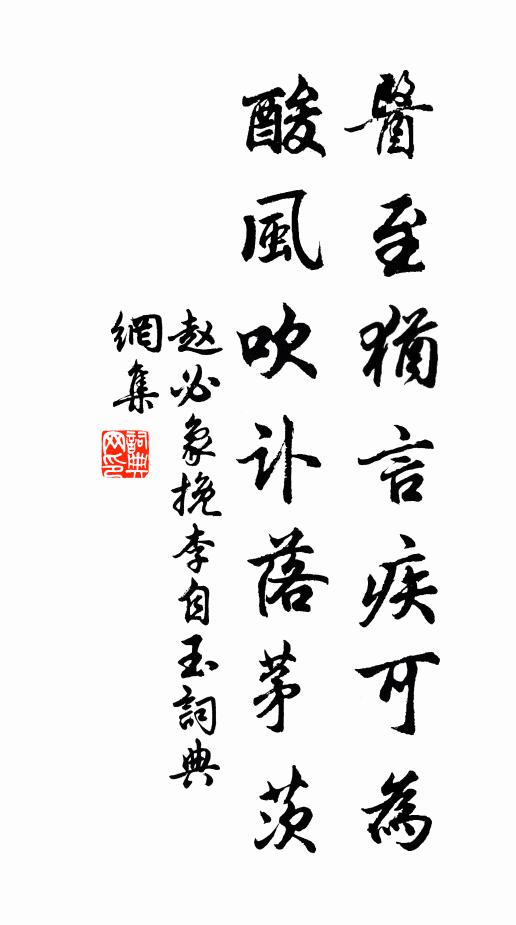 醫至猶言疾可為
酸風吹訃落茅茨
赵必象挽李自玉詞典
網集
詞典網印